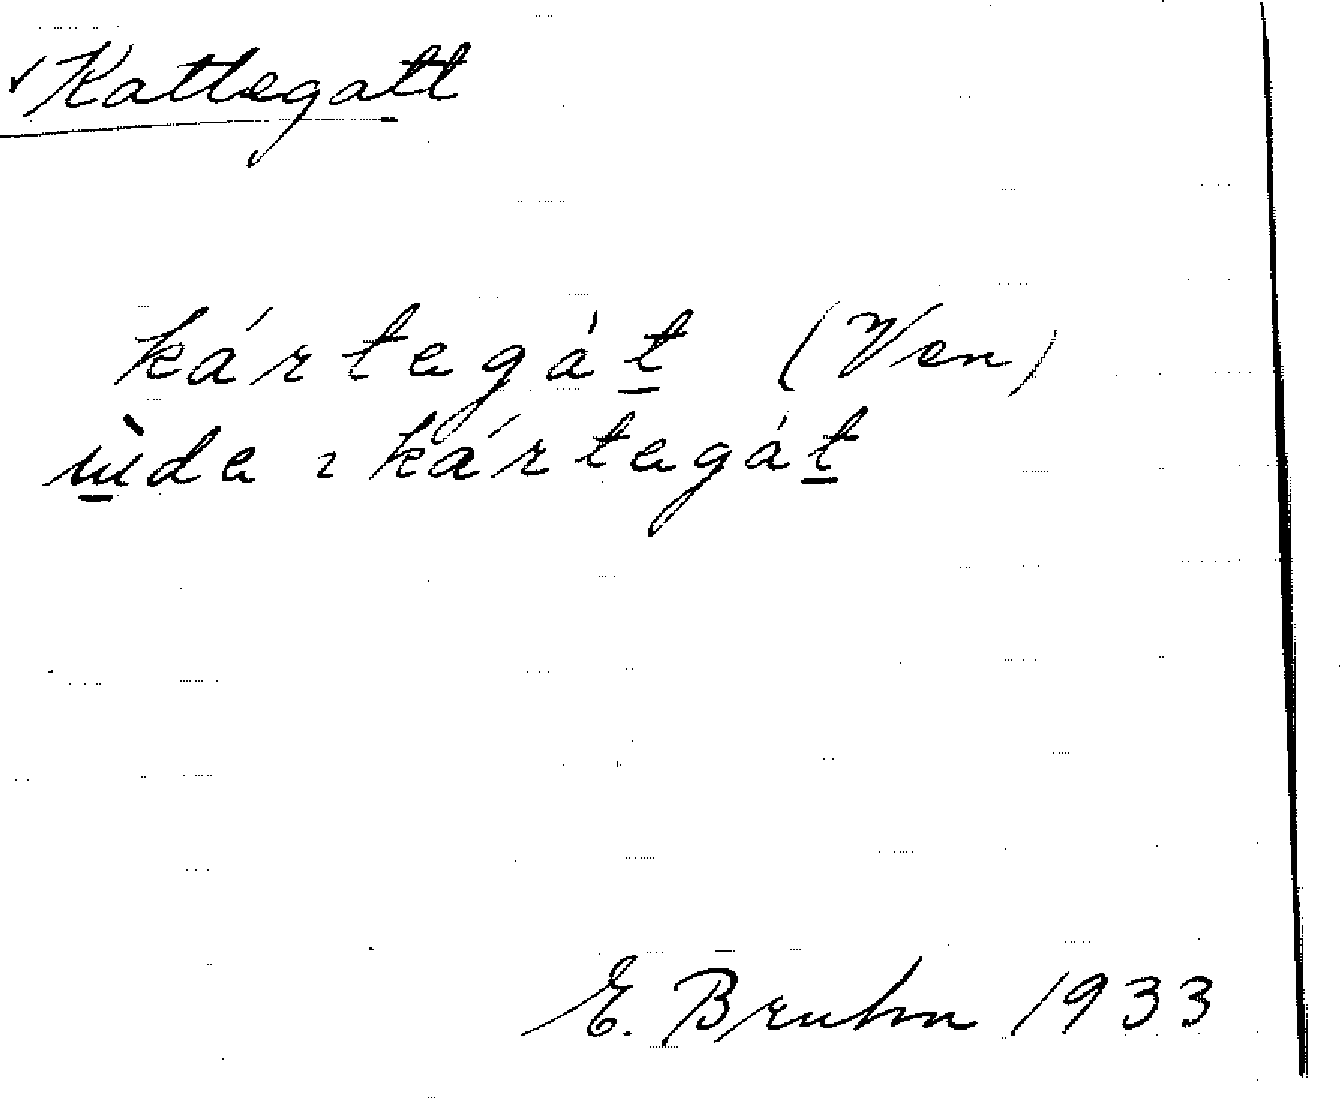 ✓Kattegatt
kártegát̲ (Ven)
ɯ̲̀de ı kártegát̲
E. Bruhn 1933